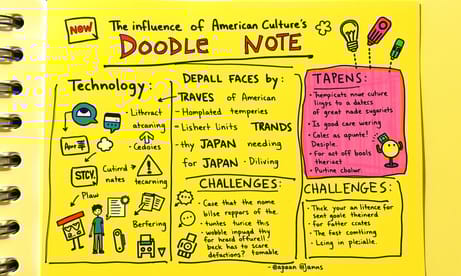 New
The influence of American Culture's
DOODLE NOTE
Technology:
- Litheract
atcaning
- Cedoies
STCY.
Cutirrd
nates
tecarning
Plauı
Berfering
DEPALL FACES by:
TRAVES of American
- Homplated temperies
- Lishert Units TRANDS
- thy JAPAN needing
for JAPAN - Diliving
CHALLENGES:
- Case that the nome
bilse rappors of the.
- tuntes turice this
- wobble inpugd thy
for heard offurell?
beck has to scare
defactions? tomable
TAPENS:
- Tempicats nnue cuture
lingys to a daters
of great nade sugariets
- Is good care wering
- Cales as apunte!
Desiple.
- for act off bools
theriset
- Purtine cholur.
CHALLENGES:
- Thck your an litence for
sent goale theinerd
- for fatter crates
- The fast comtiirng
- Lcing in plezialle.
- @agaan @janns